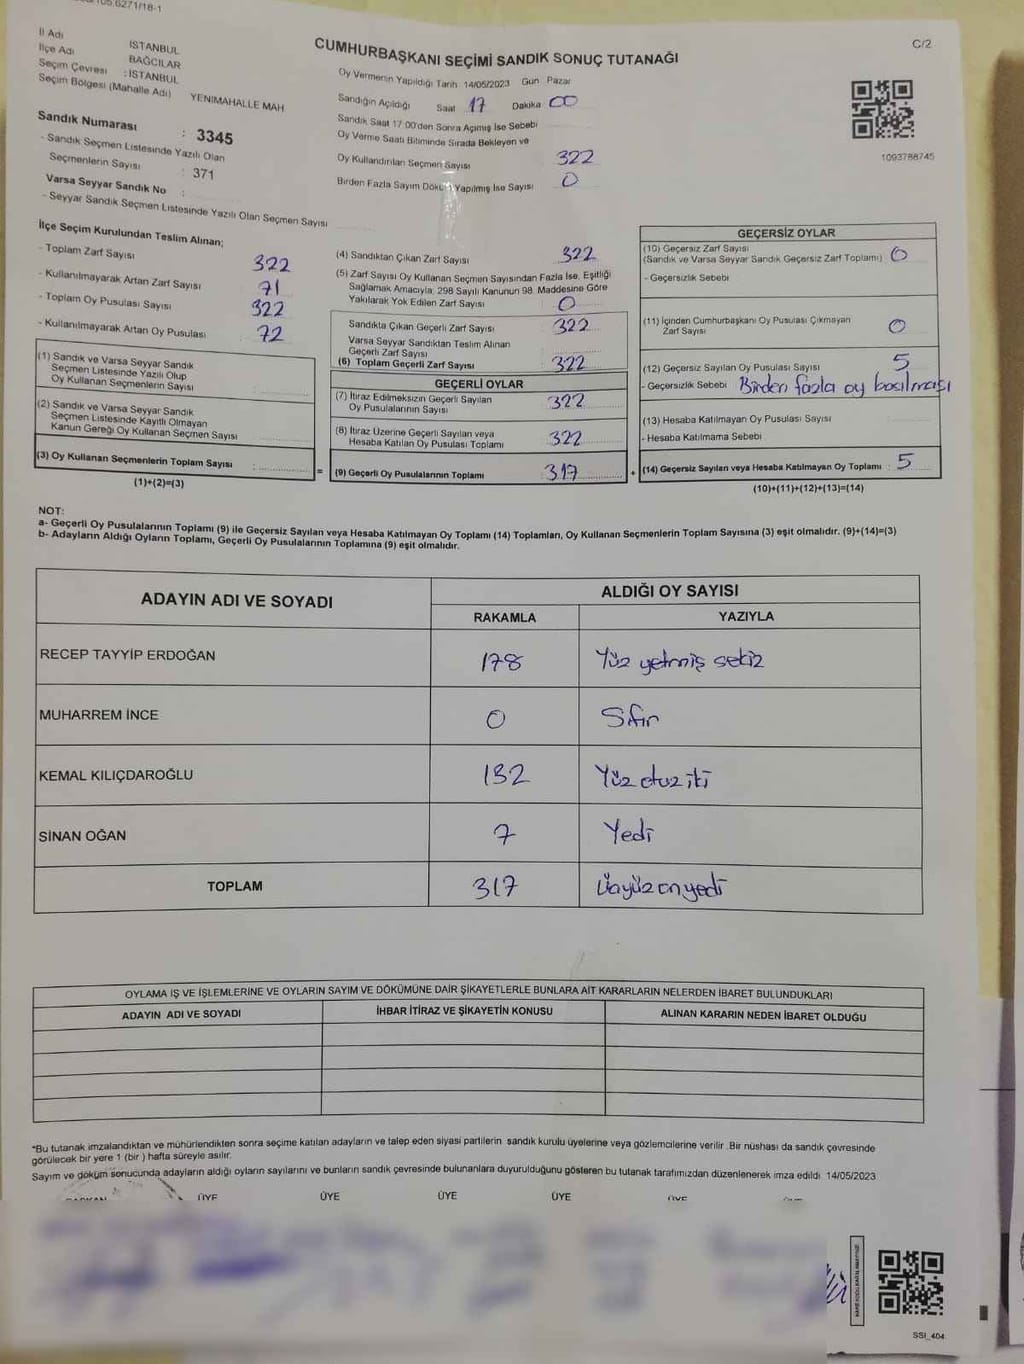 6271/18-1
C/2
İl Adı : İSTANBUL
İlçe Adı : BAĞCILAR
Seçim Çevresi : İSTANBUL
Seçim Bölgesi (Mahalle Adı) YENİMAHALLE MAH
Sandık Numarası : 3345
- Sandık Seçmen Listesinde Yazılı Olan
Seçmenlerin Sayısı : 371
Varsa Seyyar Sandık No :
- Seyyar Sandık Seçmen Listesinde Yazılı Olan Seçmen Sayısı
CUMHURBAŞKANI SEÇİMİ SANDIK SONUÇ TUTANAĞI
Oy Vermenin Yapıldığı Tarih 14/05/2023 Gün Pazar
Sandığın Açıldığı Saat 17 Dakika 00
Sandık Saat 17:00'den Sonra Açılmış İse Sebebi
Oy Verme Saati Bitiminde Sırada Bekleyen ve
Oy Kullandırılan Seçmen Sayısı 322
Birden Fazla Sayım Dökü Yapılmış İse Sayısı 0
1093788745
İlçe Seçim Kurulundan Teslim Alınan;
- Toplam Zarf Sayısı 322
- Kullanılmayarak Artan Zarf Sayısı 71
- Toplam Oy Pusulası Sayısı 322
- Kullanılmayarak Artan Oy Pusulası 72
(1) Sandık ve Varsa Seyyar Sandık
Seçmen Listesinde Yazılı Olup
Oy Kullanan Seçmenlerin Sayısı :
(2) Sandık ve Varsa Seyyar Sandık
Seçmen Listesinde Kayıtlı Olmayan
Kanun Gereği Oy Kullanan Seçmen Sayısı :
(3) Oy Kullanan Seçmenlerin Toplam Sayısı :
(1)+(2)=(3)
(4) Sandıktan Çıkan Zarf Sayısı 322
(5) Zarf Sayısı Oy Kullanan Seçmen Sayısından Fazla İse, Eşitliği
Sağlamak Amacıyla; 298 Sayılı Kanunun 98. Maddesine Göre
Yakılarak Yok Edilen Zarf Sayısı 0
Sandıkta Çıkan Geçerli Zarf Sayısı 322
Varsa Seyyar Sandıktan Teslim Alınan
Geçerli Zarf Sayısı
(6) Toplam Geçerli Zarf Sayısı 322
GEÇERLİ OYLAR
(7) İtiraz Edilmeksizin Geçerli Sayılan
Oy Pusulalarının Sayısı : 322
(8) İtiraz Üzerine Geçerli Sayılan veya
Hesaba Katılan Oy Pusulası Toplamı : 322
= (9) Geçerli Oy Pusulalarının Toplamı : 317
GEÇERSİZ OYLAR
(10) Geçersiz Zarf Sayısı
(Sandık ve Varsa Seyyar Sandık Geçersiz Zarf Toplamı) 0
- Geçersizlik Sebebi
(11) İçinden Cumhurbaşkanı Oy Pusulası Çıkmayan
Zarf Sayısı 0
(12) Geçersiz Sayılan Oy Pusulası Sayısı 5
- Geçersizlik Sebebi Birden fazla oy basılması
(13) Hesaba Katılmayan Oy Pusulası Sayısı
- Hesaba Katılmama Sebebi
+ (14) Geçersiz Sayılan veya Hesaba Katılmayan Oy Toplamı : 5
(10)+(11)+(12)+(13)=(14)
NOT:
a- Geçerli Oy Pusulalarının Toplamı (9) ile Geçersiz Sayılan veya Hesaba Katılmayan Oy Toplamı (14) Toplamları, Oy Kullanan Seçmenlerin Toplam Sayısına (3) eşit olmalıdır. (9)+(14)=(3)
b- Adayların Aldığı Oyların Toplamı, Geçerli Oy Pusulalarının Toplamına (9) eşit olmalıdır.
ADAYIN ADI VE SOYADI
ALDIĞI OY SAYISI
RAKAMLA YAZIYLA
RECEP TAYYİP ERDOĞAN 178 Yüz yetmiş sekiz
MUHARREM İNCE 0 Sıfır
KEMAL KILIÇDAROĞLU 132 Yüz otuz iki
SİNAN OĞAN 7 Yedi
TOPLAM 317 Üçyüz onyedi
OYLAMA İŞ VE İŞLEMLERİNE VE OYLARIN SAYIM VE DÖKÜMÜNE DAİR ŞİKAYETLERLE BUNLARA AİT KARARLARIN NELERDEN İBARET BULUNDUKLARI
ADAYIN ADI VE SOYADI İHBAR İTİRAZ VE ŞİKAYETİN KONUSU ALINAN KARARIN NEDEN İBARET OLDUĞU
*Bu tutanak imzalandıktan ve mühürlendikten sonra seçime katılan adayların ve talep eden siyasi partilerin sandık kurulu üyelerine veya gözlemcilerine verilir. Bir nüshası da sandık çevresinde
görülecek bir yere 1 (bir) hafta süreyle asılır.
Sayım ve döküm sonucunda adayların aldığı oyların sayılarını ve bunların sandık çevresinde bulunanlara duyurulduğunu gösteren bu tutanak tarafımızdan düzenlenerek imza edildi. 14/05/2023
BAŞKAN ÜYE ÜYE ÜYE ÜYE ÜYE
SSI_404